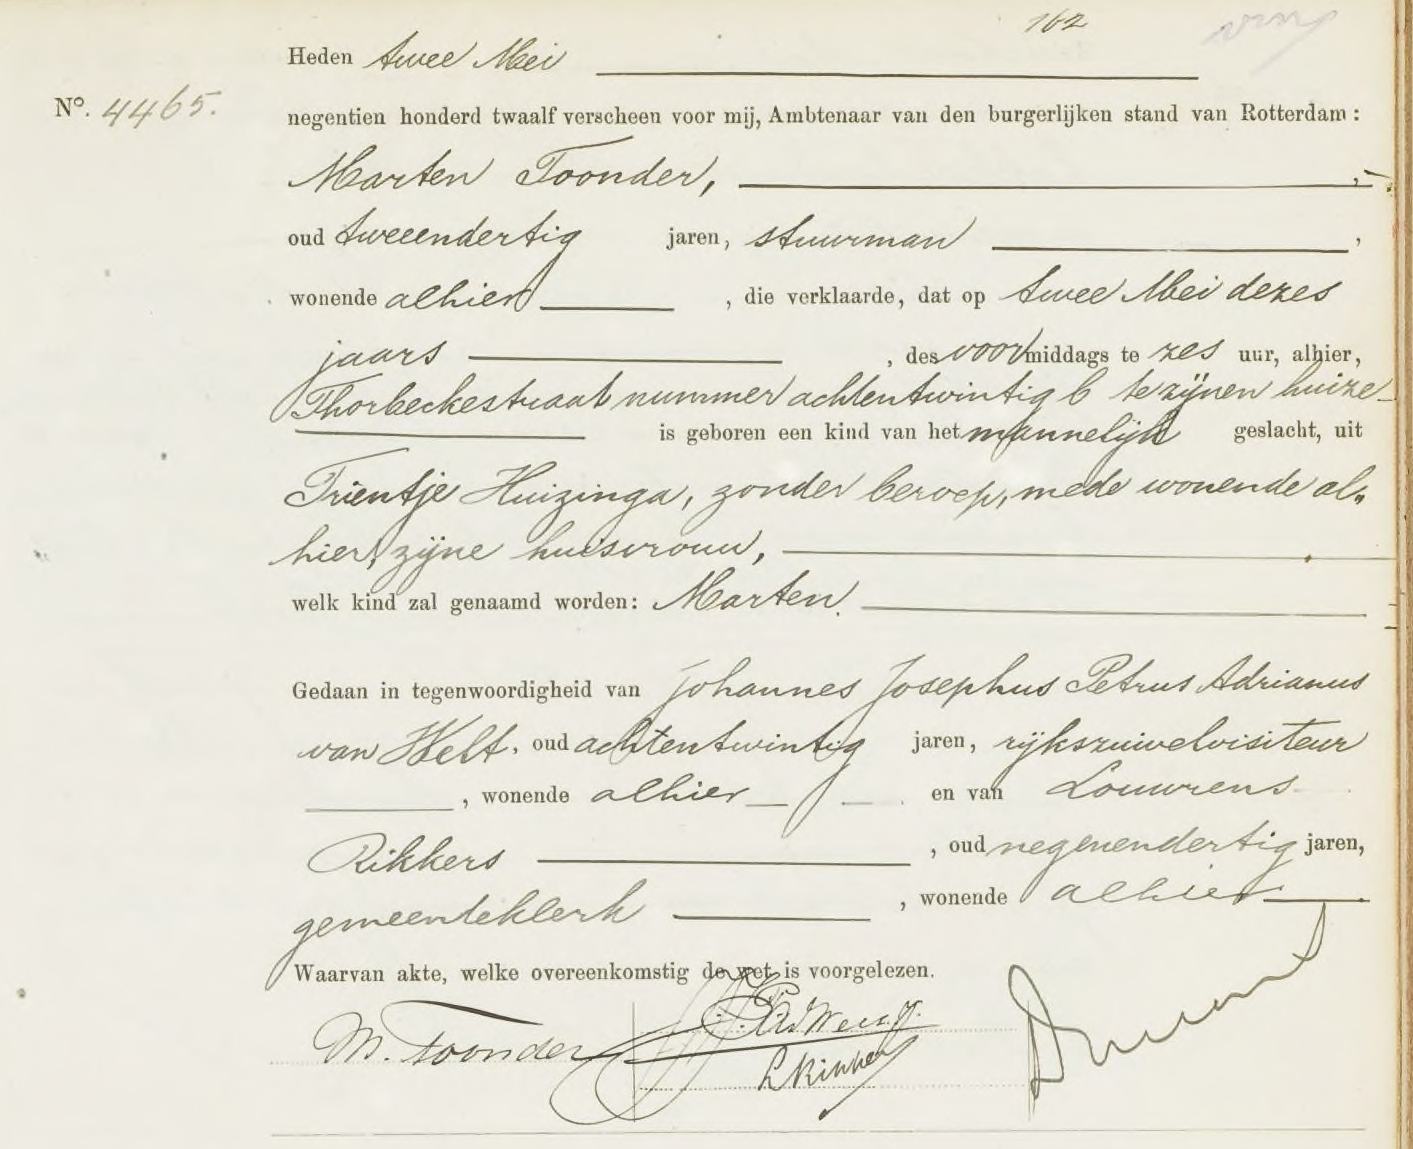 162
Heden twee Mei
No. 4465.
negentien honderd twaalf verscheen voor mij, Ambtenaar van den burgerlijken stand van Rotterdam :
Marten Toonder,
oud tweeendertig jaren, stuurman ,
wonende alhier , die verklaarde, dat op twee Mei dezes
jaars , des voormiddags te zes uur, alhier,
Thorbeckestraat nummer achtentwintig b te zijnen huize
is geboren een kind van het mannelijk geslacht, uit
Trientje Huizinga, zonder beroep, mede wonende al„
hier, zijne huisvrouw,
welk kind zal genaamd worden: Marten.
Gedaan in tegenwoordigheid van Johannes Josephus Petrus Adrianus
van Welt, oud achtentwintig jaren, rijkszuivelvisiteur
, wonende alhier en van Louwrens
Rikkers , oud negenendertig jaren,
gemeenteklerk , wonende alhier.
Waarvan akte, welke overeenkomstig de wet is voorgelezen.
M. Toonder
L Rikkers